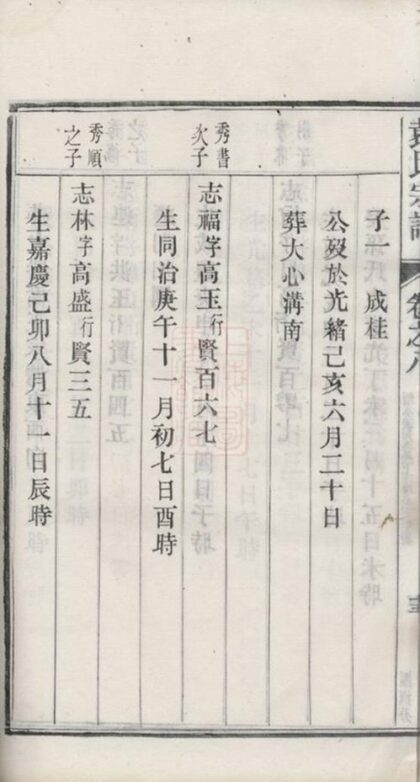 氏宗譜
卷之八
子一 成桂
公歿於光緒己亥六月三十日
葬大心溝南
秀書
次子
志福字高玉行賢百六七
生同治庚午十一月初七日酉時
秀順
之子
志林字高盛行賢三五
生嘉慶己卯八月十一日辰時